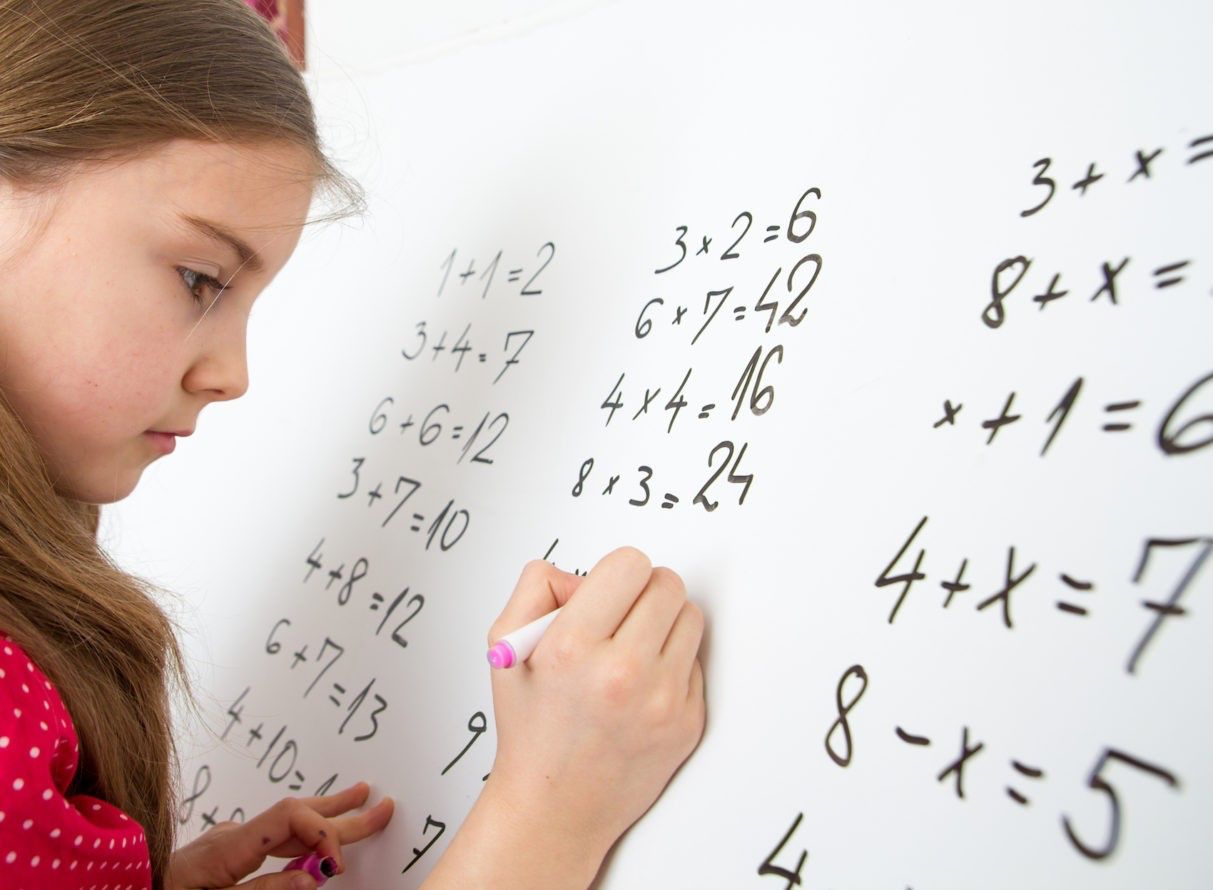 1+1=2
3+4=7
6+6=12
3+7=10
4+8=12
6+7=13
4+10=1
8+
3×2=6
6×7=42
4×4=16
8×3=24
9
7
3+x=
8+x=
x+1=6
4+x=7
8-x=5
4